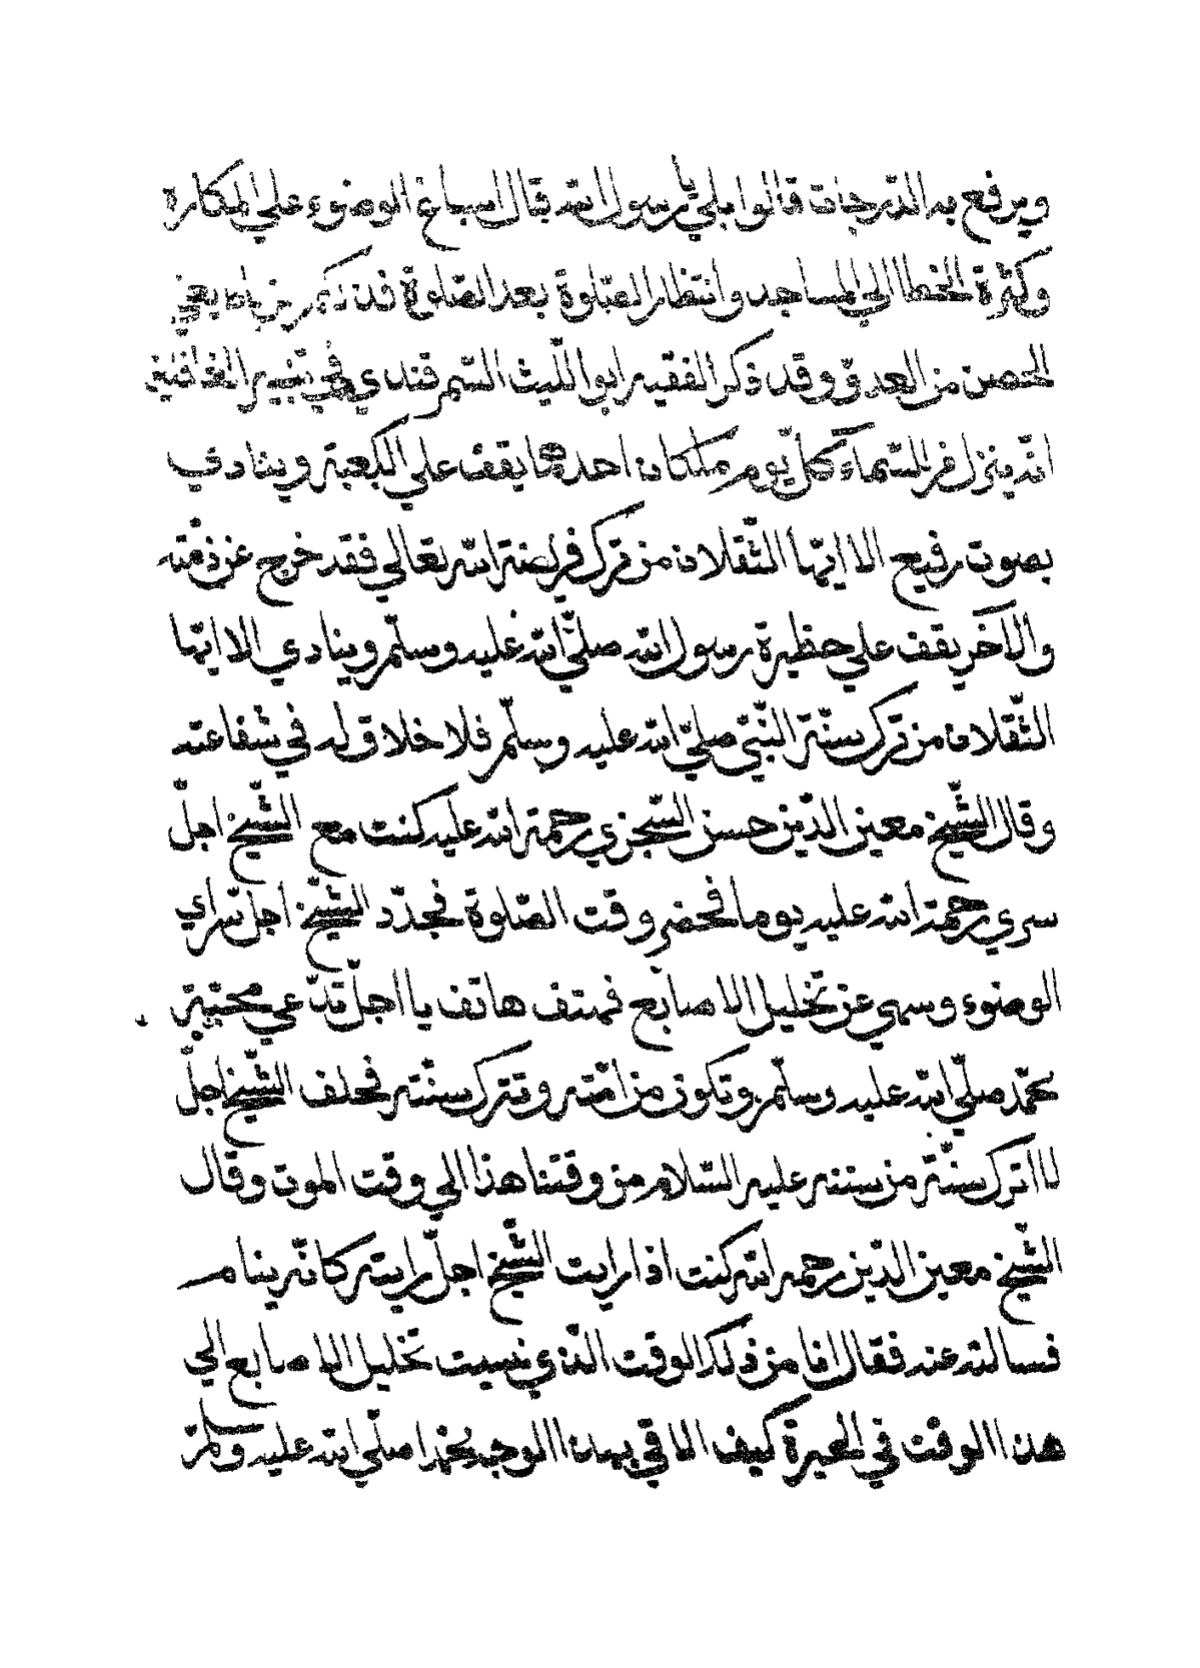 ويرفع به الدرجات قالوا بلي يا رسول الله قال اسباغ الوضوء علي المكاره
وكثرة الخطا الي المساجد وانتظار الصّلوة بعد الصّلوة فذلكم رباط يعني
الحصن من العدوّ وقد ذكر الفقيه ابو اللّيث السّمرقندي في تنبيه الغافلين
انّه ينزل من السّماء كلّ يوم ملكان احدهما يقف علي الكعبة وينادي
بصوت رفيع الا ايّها الثّقلان من ترك فريضة الله تعالي فقد خرج عن ذمّته
والآخر يقف علي حظيرة رسول الله صلّي الله عليه وسلّم وينادي الا ايّها
الثّقلان من ترك سنّة النّبيّ صلّي الله عليه وسلّم فلا خلاق له في شفاعته
وقال الشّيخ معين الدّين حسن السّجزي رحمة الله عليه كنت مع الشّيخ اجلّ
سري رحمة الله عليه يوما فحضر وقت الصّلوة فجدّد الشّيخ اجلّ سراي
الوضوء وسهي عن تخليل الاصابع فهتف هاتف يا اجلّ تدّعي محبّة
محمّد صلّي الله عليه وسلّم وتكون من امّته وتترك سنّته فحلف الشّيخ اجلّ
لا اترك سنّة من سننه عليه السّلام من وقتنا هذا الي وقت الموت وقال
الشّيخ معين الدّين رحمه الله كنت اذا رايت الشّيخ اجلّ رايته كانّه ينام
فسالته عنه فقال انا من ذلك الوقت الّذي نسيت تخليل الاصابع الي
هذا الوقت في الحيرة كيف الاقي بهذا الوجه محمّدا صلّي الله عليه وسلّم